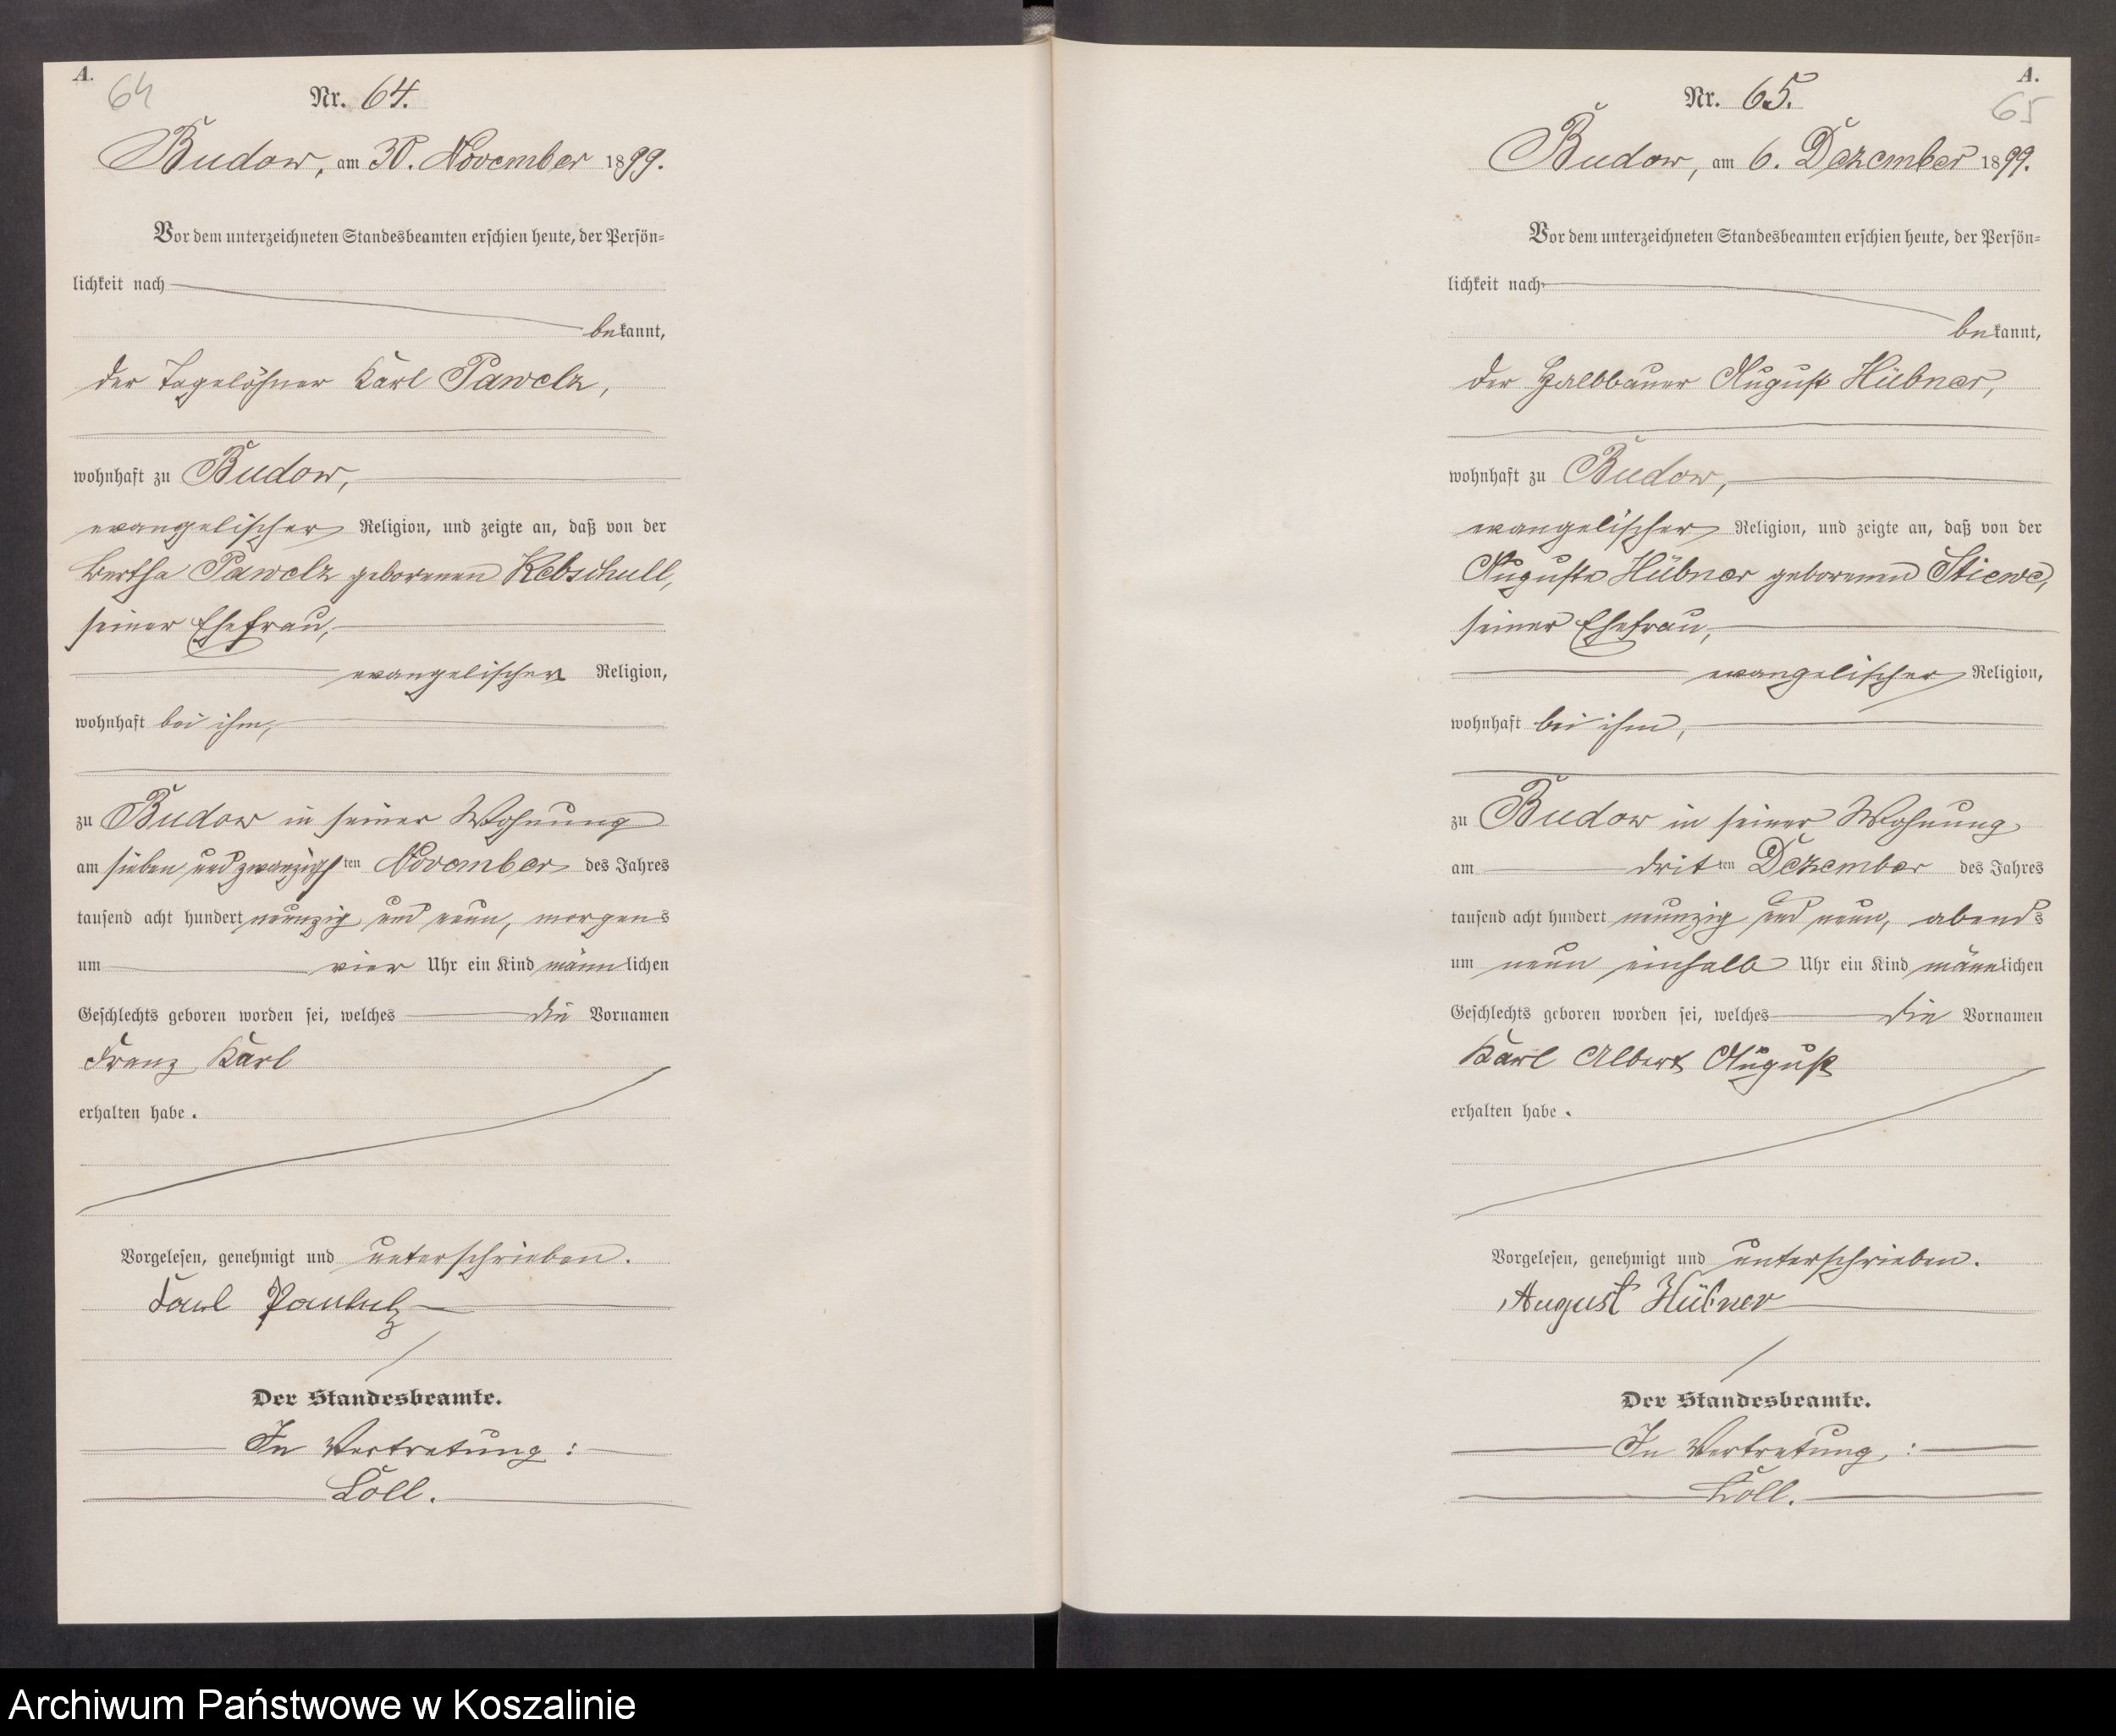 A.
64
Nr. 64.
Budow, am 30. November 1899.
Vor dem unterzeichneten Standesbeamten erschien heute, der Persön-
lichkeit nach
bekannt,
der Tagelöhner Karl Pawelz,
wohnhaft zu Budow,
evangelischer Religion, und zeigte an, daß von der
Bertha Pawelz geborenen Kebschull,
seiner Ehefrau,
evangelischer Religion,
wohnhaft bei ihm,
zu Budow in seiner Wohnung
am sieben und zwanzigsten November des Jahres
tausend acht hundert neunzig und neun, morgens
um vier Uhr ein Kind männlichen
Geschlechts geboren worden sei, welches die Vornamen
Franz Karl
erhalten habe.
Vorgelesen, genehmigt und unterschrieben.
Der Standesbeamte.
In Vertretung:
Koll.
A.
65
Nr. 65.
Budow, am 6. Dezember 1899.
Vor dem unterzeichneten Standesbeamten erschien heute, der Persön-
lichkeit nach
bekannt,
der Halbbauer August Hübner,
wohnhaft zu Budow,
evangelischer Religion, und zeigte an, daß von der
Auguste Hübner geborenen Stiewe,
seiner Ehefrau,
evangelischer Religion,
wohnhaft bei ihm,
zu Budow in seiner Wohnung
am dritten Dezember des Jahres
tausend acht hundert neunzig und neun, abends
um neun einhalb Uhr ein Kind männlichen
Geschlechts geboren worden sei, welches die Vornamen
Karl Albert August
erhalten habe.
Vorgelesen, genehmigt und unterschrieben.
August Hübner
Der Standesbeamte.
In Vertretung:
Koll.
Archiwum Państwowe w Koszalinie